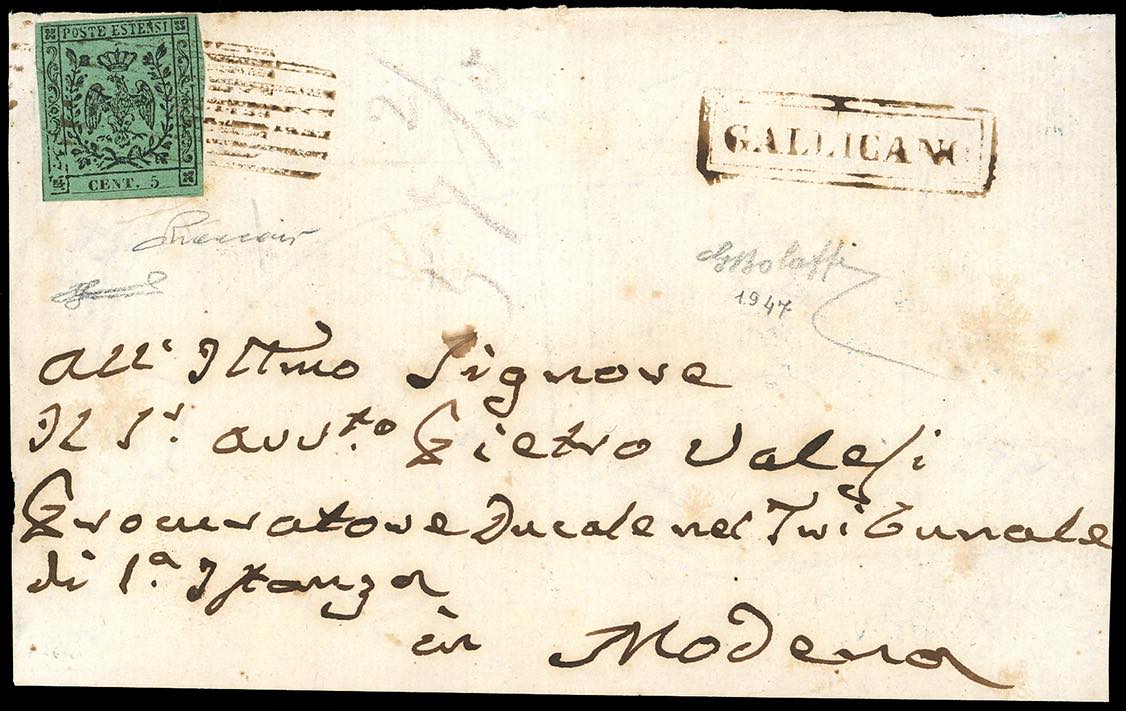 POSTE ESTENSI
CENT. 5
GALLICANO
GBolaffi
1947
All' Illmo Signore
Il Sr. Avvto Pietro Valesi
Procuratore Ducale nel Tribunale
di 1a Istanza
in Modena